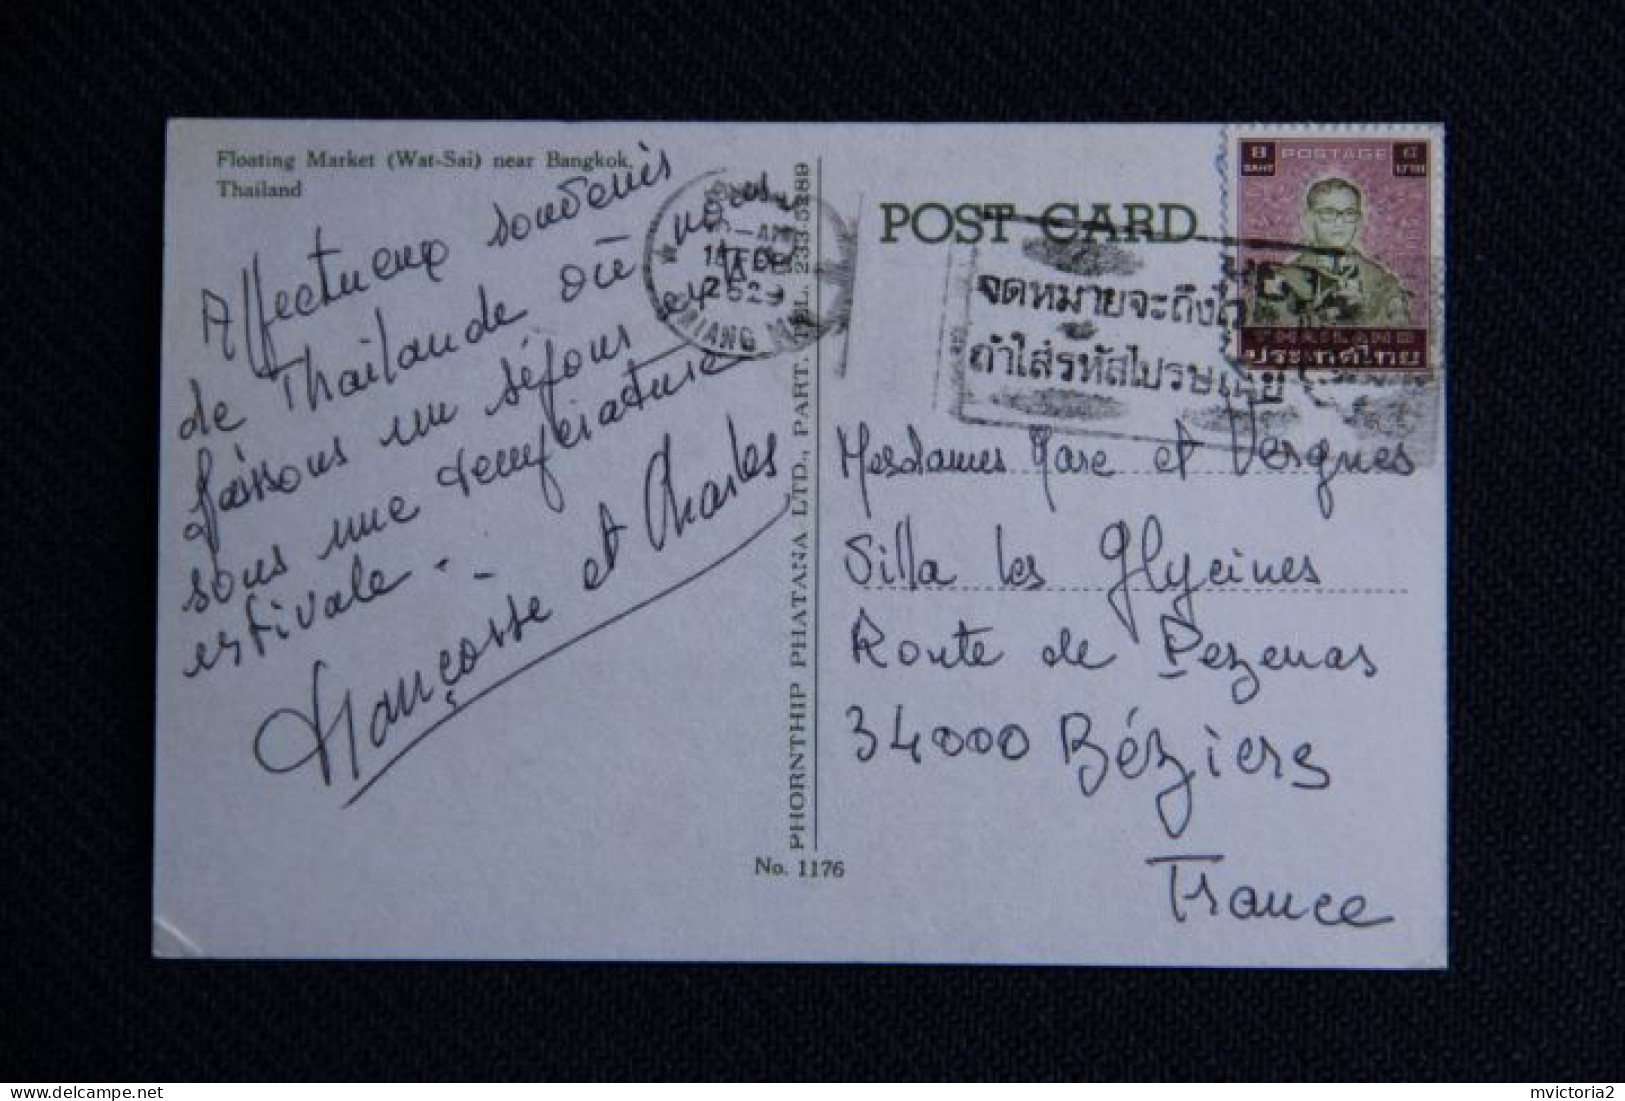 Floating Market (Wat-Sai) near Bangkok,
Thailand
Affectueux souvenirs
de Thaïlande où nous
faisons un séjour
sous une température
estivale.
Françoise et Charles
2529
PHORNTHIP PHATANA LTD., PART. TEL. 233-5289
No. 1176
POST CARD
จดหมายจะถึง
ถ้าใส่รหัสไปรษณีย์
8 POSTAGE ๘
BAHT บาท
THAILAND
ประเทศไทย
Mesdames Mare et Vergnes
Silla les Glycines
Route de Pezenas
34000 Béziers
France
mvictoria2